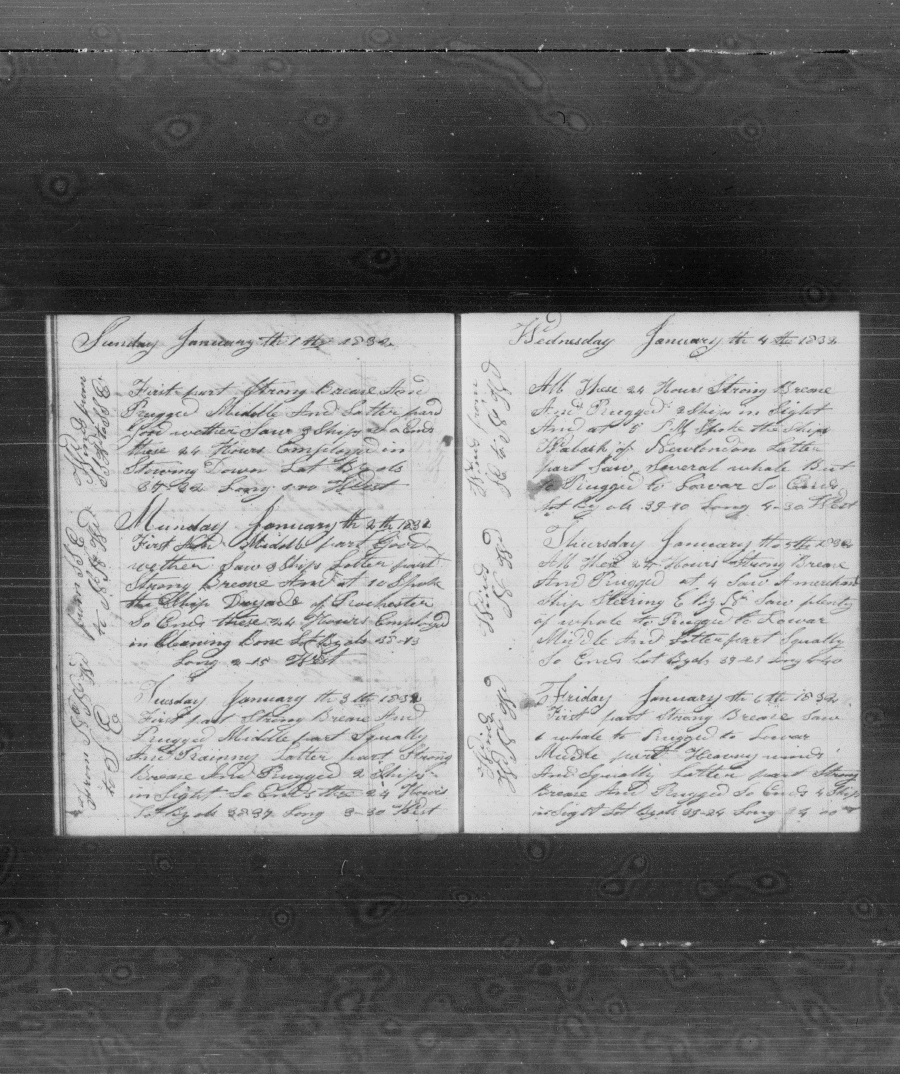 Sunday January th 1 the 1832
Wind from
First part Strong Brease And
Rugged Middle And Latter part
Good wether Saw 3 Ships So Ends
these 24 Hours Employed in
Stowing Down Lat By ob
Long West
Munday January th 2 th 1832
from S E
to
First And Middle part Good
wether Saw 3 Ships Latter part
Strong Brease And at 10 Spoke
the Ship Dryade of Rochester
So Ends these 24 Hours Employed
in Cleaning Bone Lat By ob
Long 2-15 West
Tuesday January th 3 th 1832
from
to S E
First part Strong Brease And
Rugged Middle part Squally
And Rainny Latter part Strong
Brease And Rugged 2 Ships
in Sight So Ends the 24 Hours
Lat By ob 38 37 Long 3-30 West
Wednesday January th 4 th 1832
Winds from
All These 24 Hours Strong Brease
And Rugged 2 Ships in Sight
And at 5 P M Spoke the Ship
of Newlondon Latter
part Saw Several whale But
to Rugged to Lowar So Ends
Lat By ob 39-10 Long 4-30 West
Thursday January th 5 th 1832
Wind
All These 24 Hours Strong Brease
And Rugged at 4 Saw A merchant
Ship Stering Saw plenty
of whale to Rugged to Lowar
Middle And Latter part Squally
So Ends Lat By ob 39-21 Long
Friday January th 6 th 1832
Wind
First part Strong Brease Saw
1 whale to Rugged to Lowar
Middle part Heavy winds
And Squally Latter part Strong
Brease And Rugged So Ends 4 Ships
in Sight Lat By ob 39-24 Long